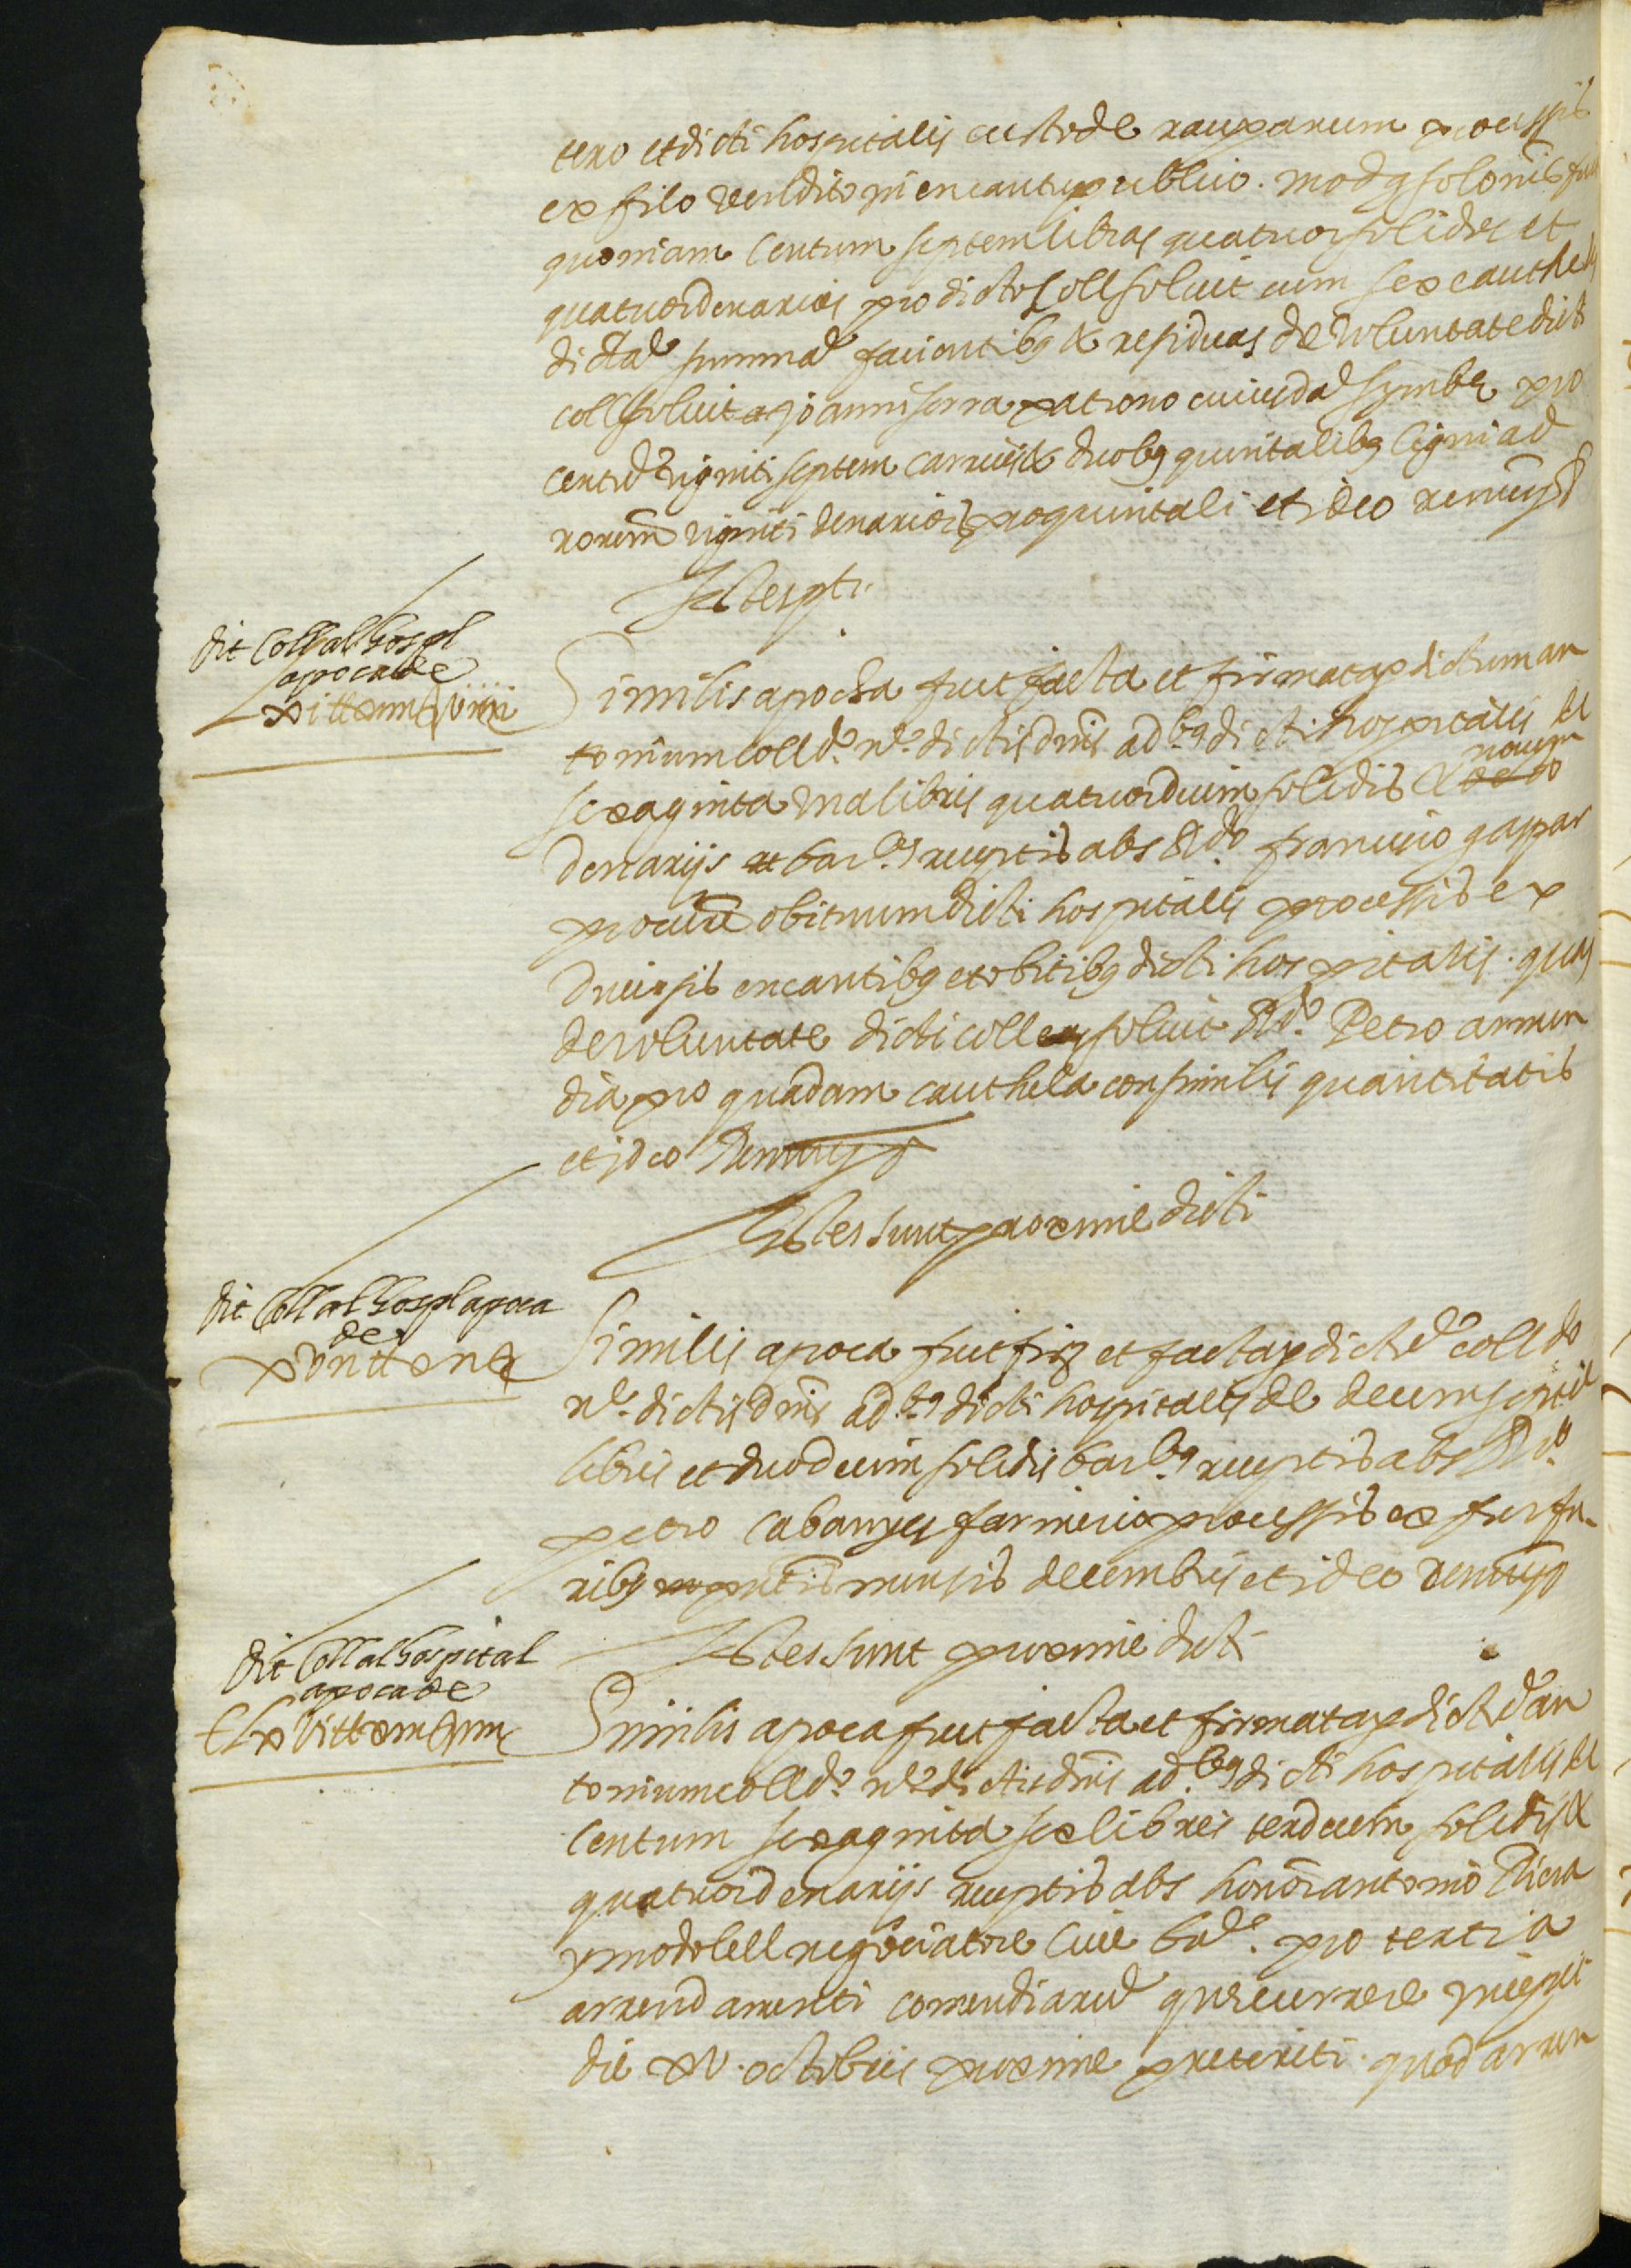 tero et dicti hospitalis custode rauparum processis
ex filo vendito in encantu publico. modq solonis fui
quoniam centum septem libras quatuor solidos et
quatuor denarios pro dictos coll soluit cum sex cauthelis
dictã summã facientibq & residuas de voluntate dicti
coll soluit joanni serra patrono cuiusdã symbe pro
centũ viginti septem carricis & duobq quintalibq ligni ad
viginti denarios pro quintali et ideo renun
Testes pti
dit Coll al hospl
apoca de
Similis apocha fuit facta et firmata p dictum an
tonium coll dº nº dictis dnis ad.bq dicti hospitalis de
novem
sexaginta una libris quatuordecim solidis & octo
denarijs bar.bq receptis abs Rdo francisco gaspar
obituum dicti hospitalis processis ex
diversis encantibq et obitibq dicti hospitalis. quas
de voluntate dicti coll soluit Rdo Petro armen
dia pro quadam cauthela consimilis quantitatis
et ideo Renun
Testes sunt proxime dicti
dit Coll al hospl apoca
de
Similis apoca fuit fir et facta p dictũ coll dº
nº dictis dnis ad.bq dicti hospitalis de decem septẽ
libris et duodecim solidis bar.bq receptis abs Rdo
petro Cabanyes farinerio processis ex furfu-
ribq mensis decembris et ideo renun
Testes sunt proxime dicti
dit Coll al hospital
apoca de
Similis apoca fuit facta et firmata p dictũ an
tonium coll dº nº dictis dnis ad.bq dicti hospitalis de
Centum sexaginta sex libris terdecim solidis &
quatuor denarijs receptis abs honor antonio Riera
y modolell negociatore Cive bnẽ. pro tertia
arrendamenti comendiarũ que currere incepit
die xv. octobris proxime preteriti. quod arren